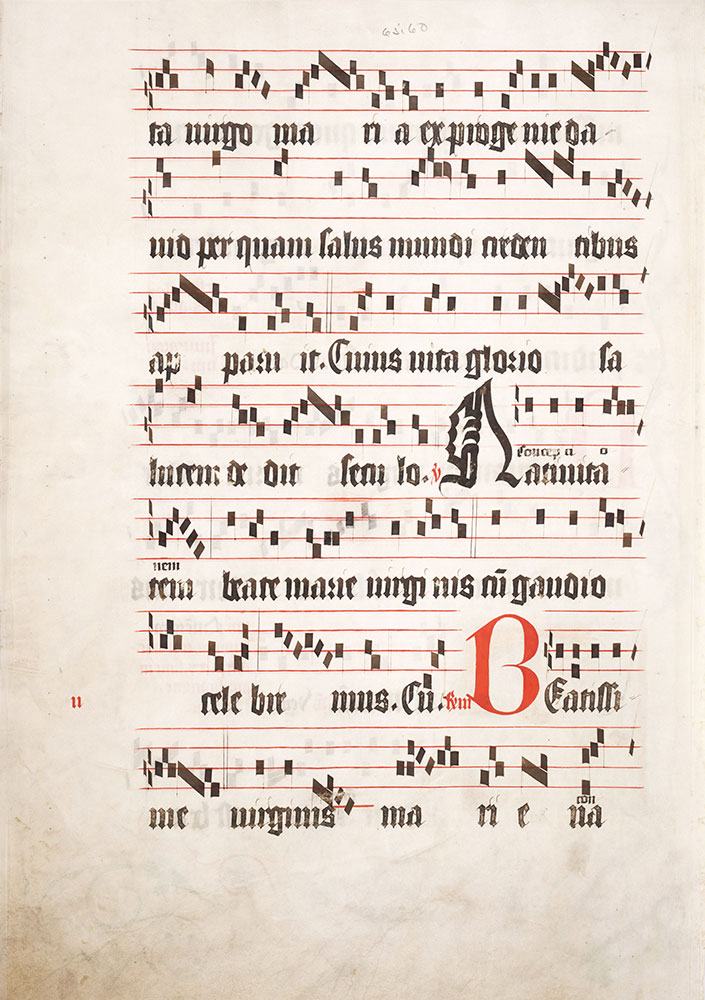 ta uirgo ma ri a ex proge nie da
uid per quam salus mundi creden tibus
ap paru it. Cuius uita glorio sa
lucem de dit secu lo. v
concep ti o
Natiuita
nem
tem beate marie uirgi nis cū gaudio
cele bre mus. Cū.
Beatissi
ii
con
me uirginis ma ri e na